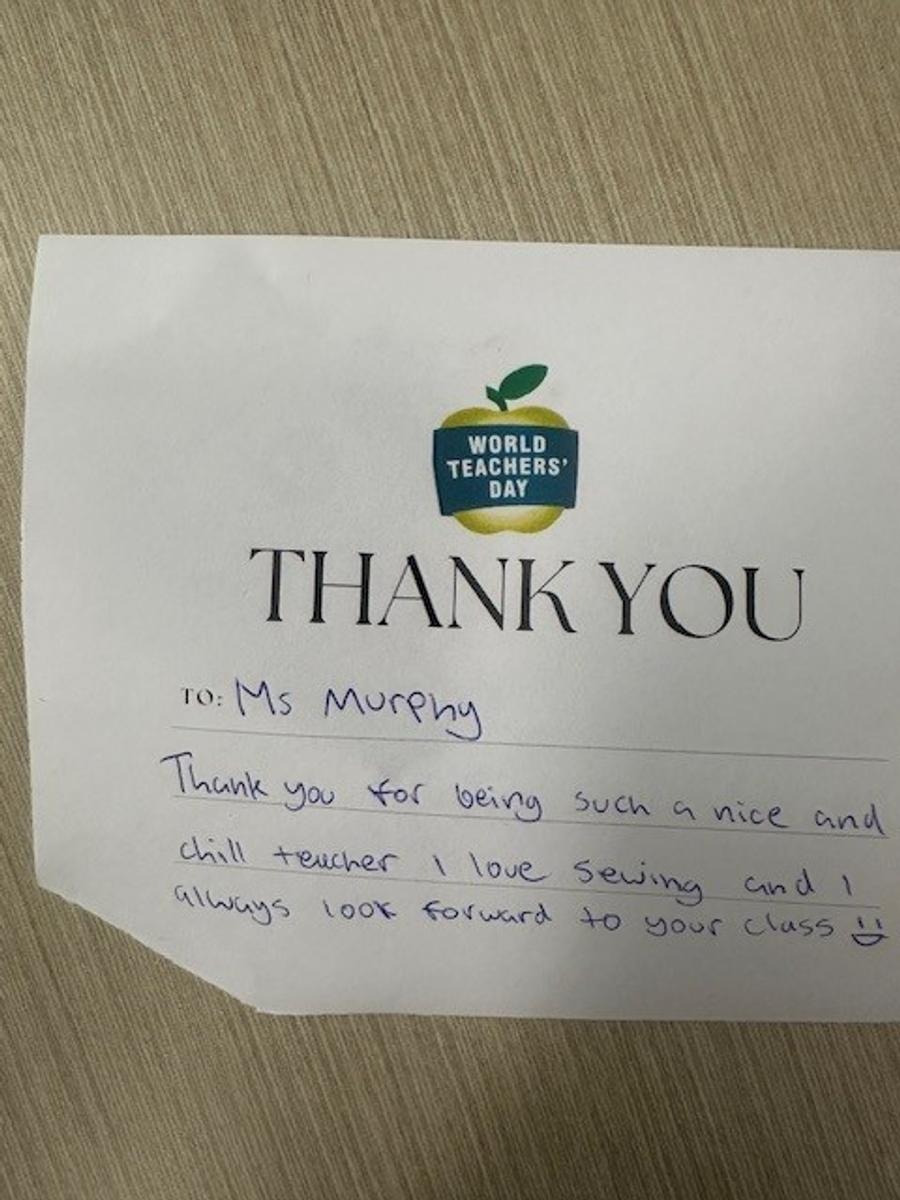 WORLD
TEACHERS'
DAY
THANK YOU
TO: Ms Murphy
Thank you for being such a nice and
chill teacher I love sewing and I
always look forward to your class